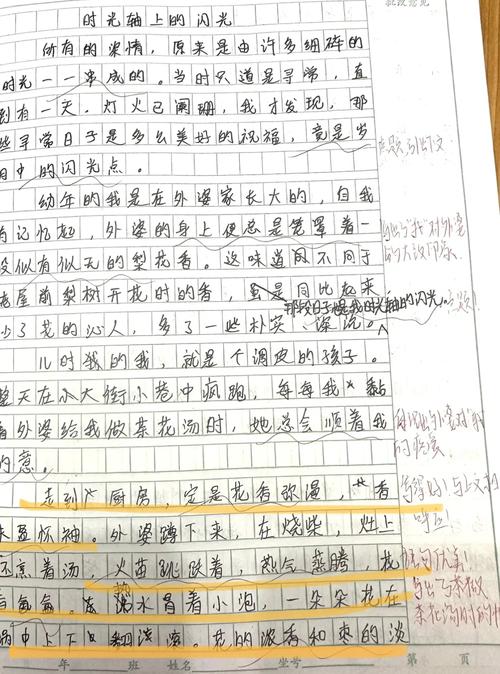 批改意见
时光轴上的闪光
所有的深情，原来是由许多细碎的
时光一一串成的。当时只道是寻常，直
到有一天，灯火已阑珊，我才发现，那
些寻常日子是多么美好的祝福，竟是岁
月中的闪光点。
点题 引出下文
幼年的我是在外婆家长大的，自我
有记忆起，外婆的身上便总是笼罩着一
股似有似无的梨花香。这味道闻不同于
老屋前梨树开花时的香，虽是同比起来
那段日子是我时光轴的闪光。
点题！
少了花的沁人，多了一些朴实、深沉。
儿时我的我，就是个调皮的孩子。
整天在小大街小巷中疯跑，每每我黏
着外婆给我做茶花汤时，她总会顺着我
的意。
走到厨房，定是花香弥漫，香
呼应
盈怀袖。外婆蹲下来，在烧柴，灶上
还熬着汤，火苗跳跃着，热气蒸腾，花
语句优美！
香氤氲。热水冒着小泡，一朵朵花在
写出了
锅中上下翻滚。花的浓香和枣的淡
茶花汤时的
年 班 姓名 坐号 第 页